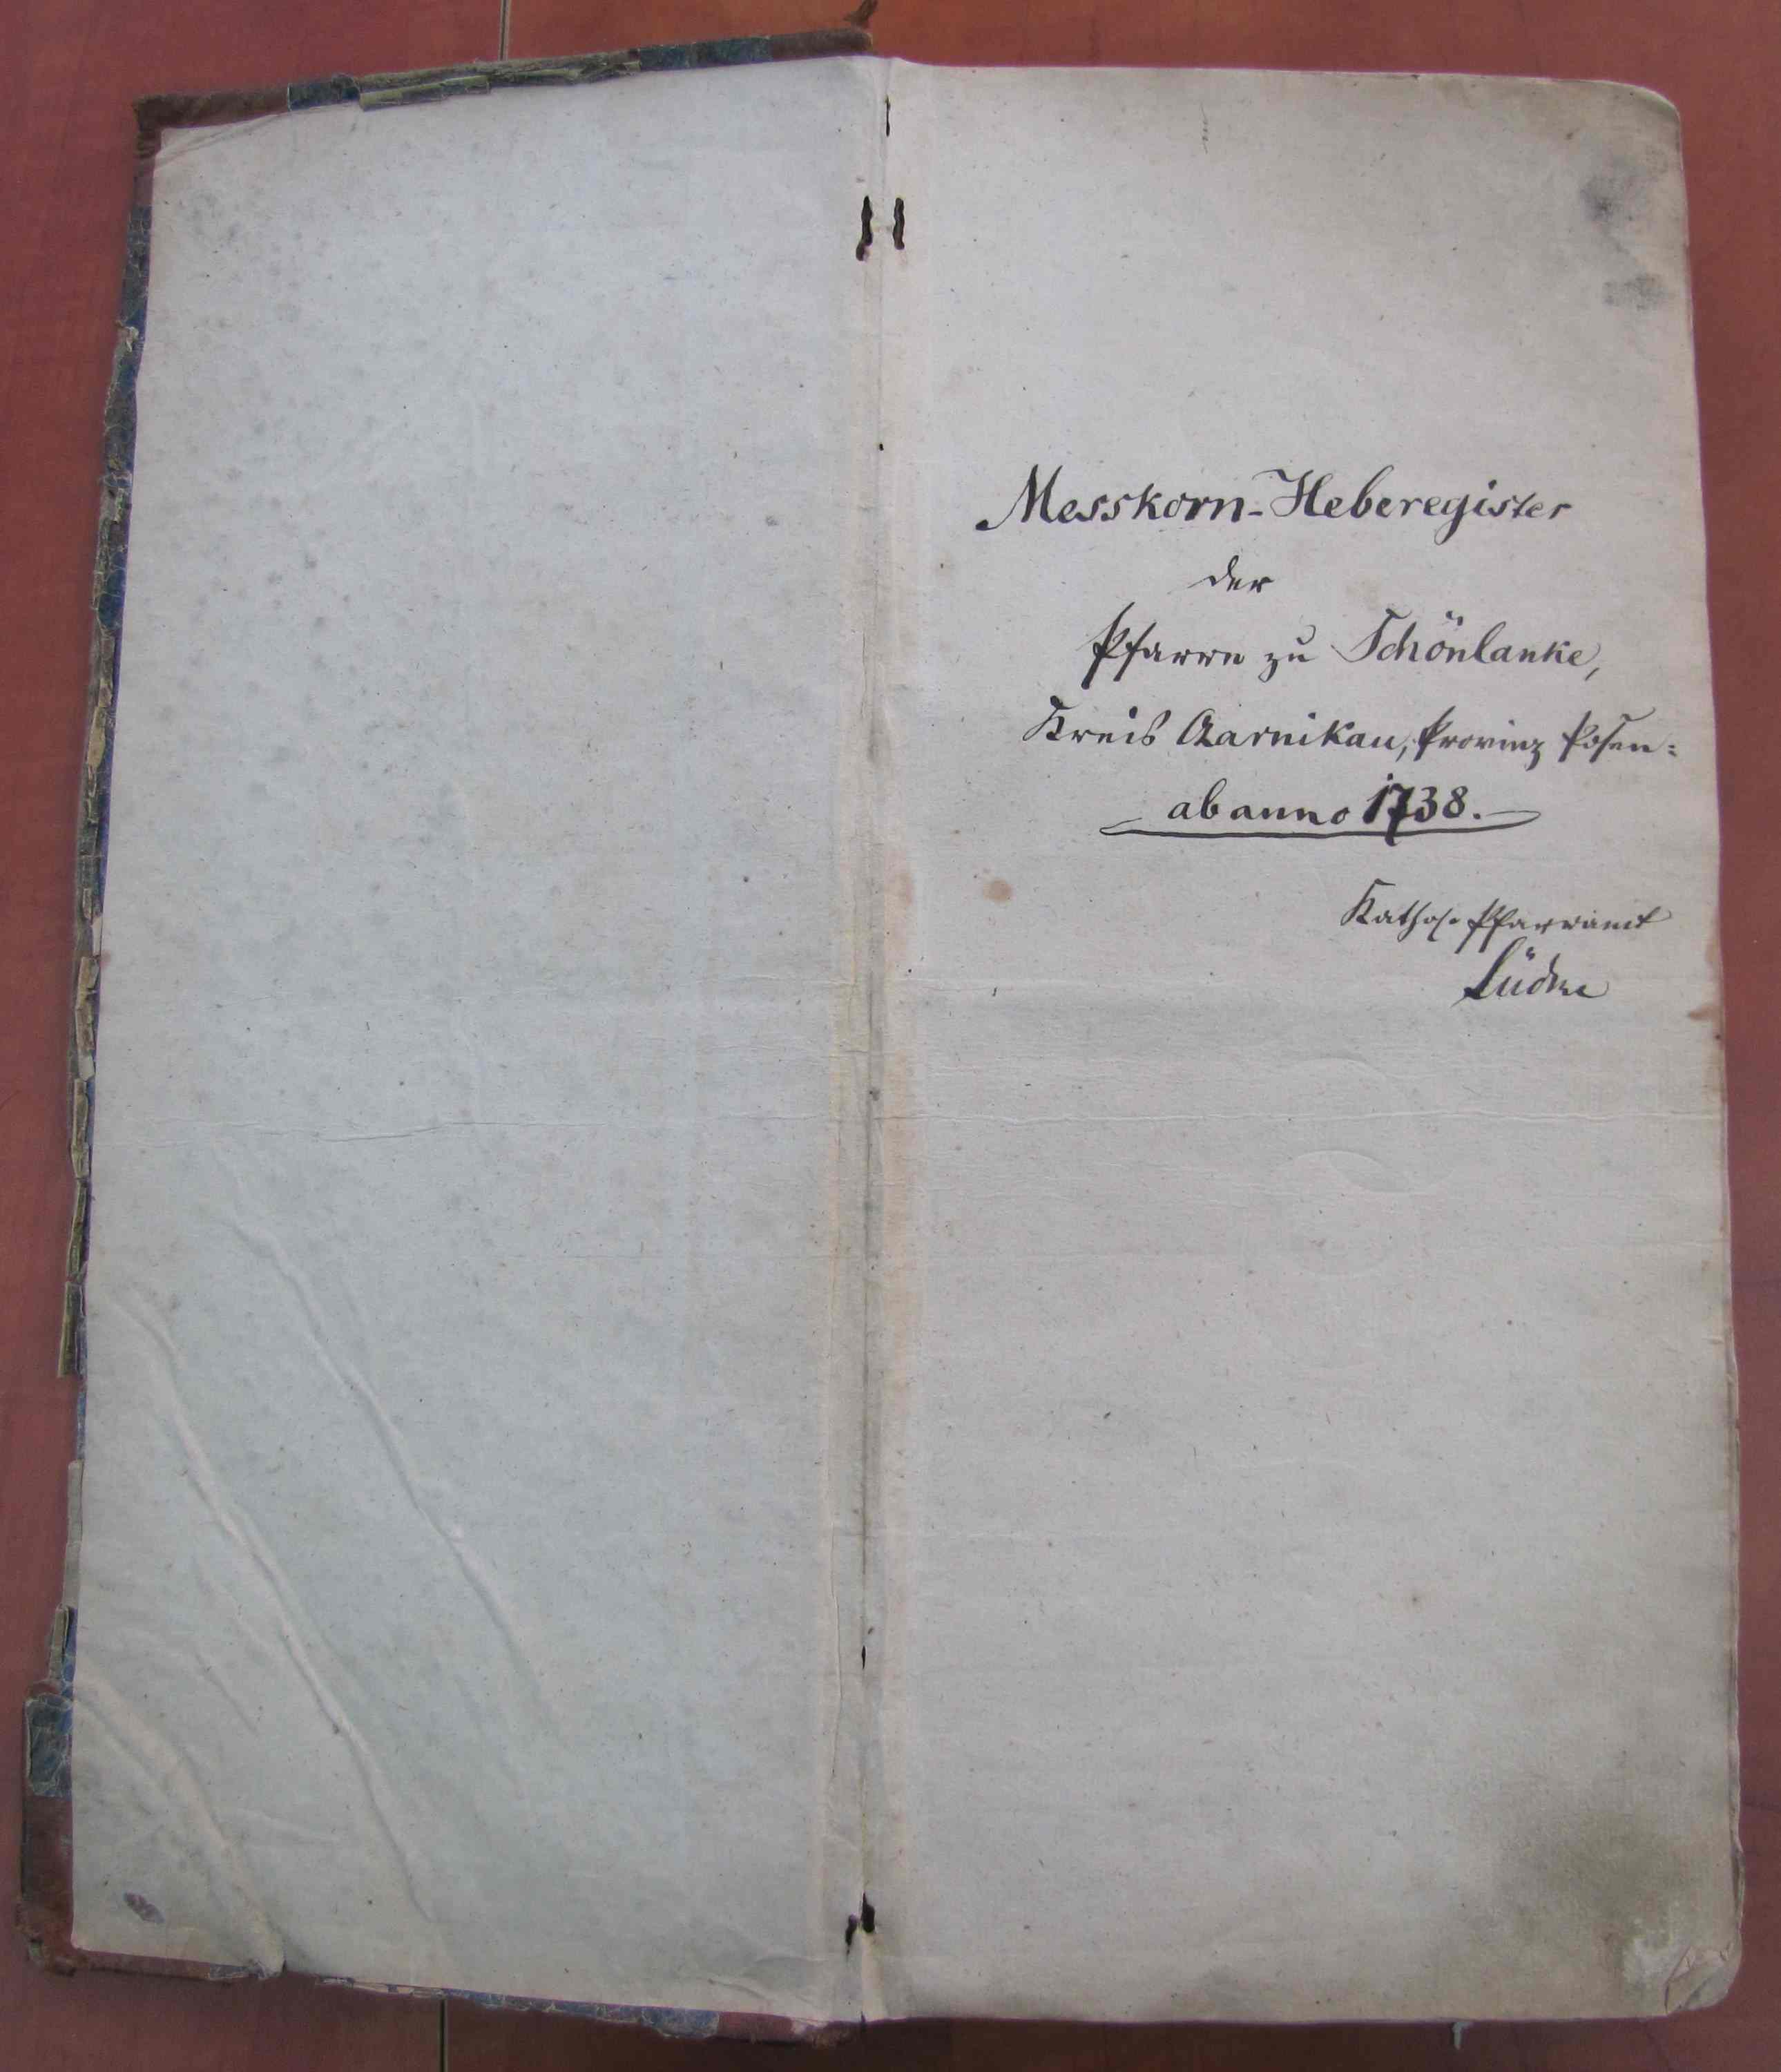 Messkorn-Heberegister
der
Pfarre zu Schönlanke,
Kreis Czarnikau, Provinz Posen:
ab anno 1738.
Kathol. Pfarramt